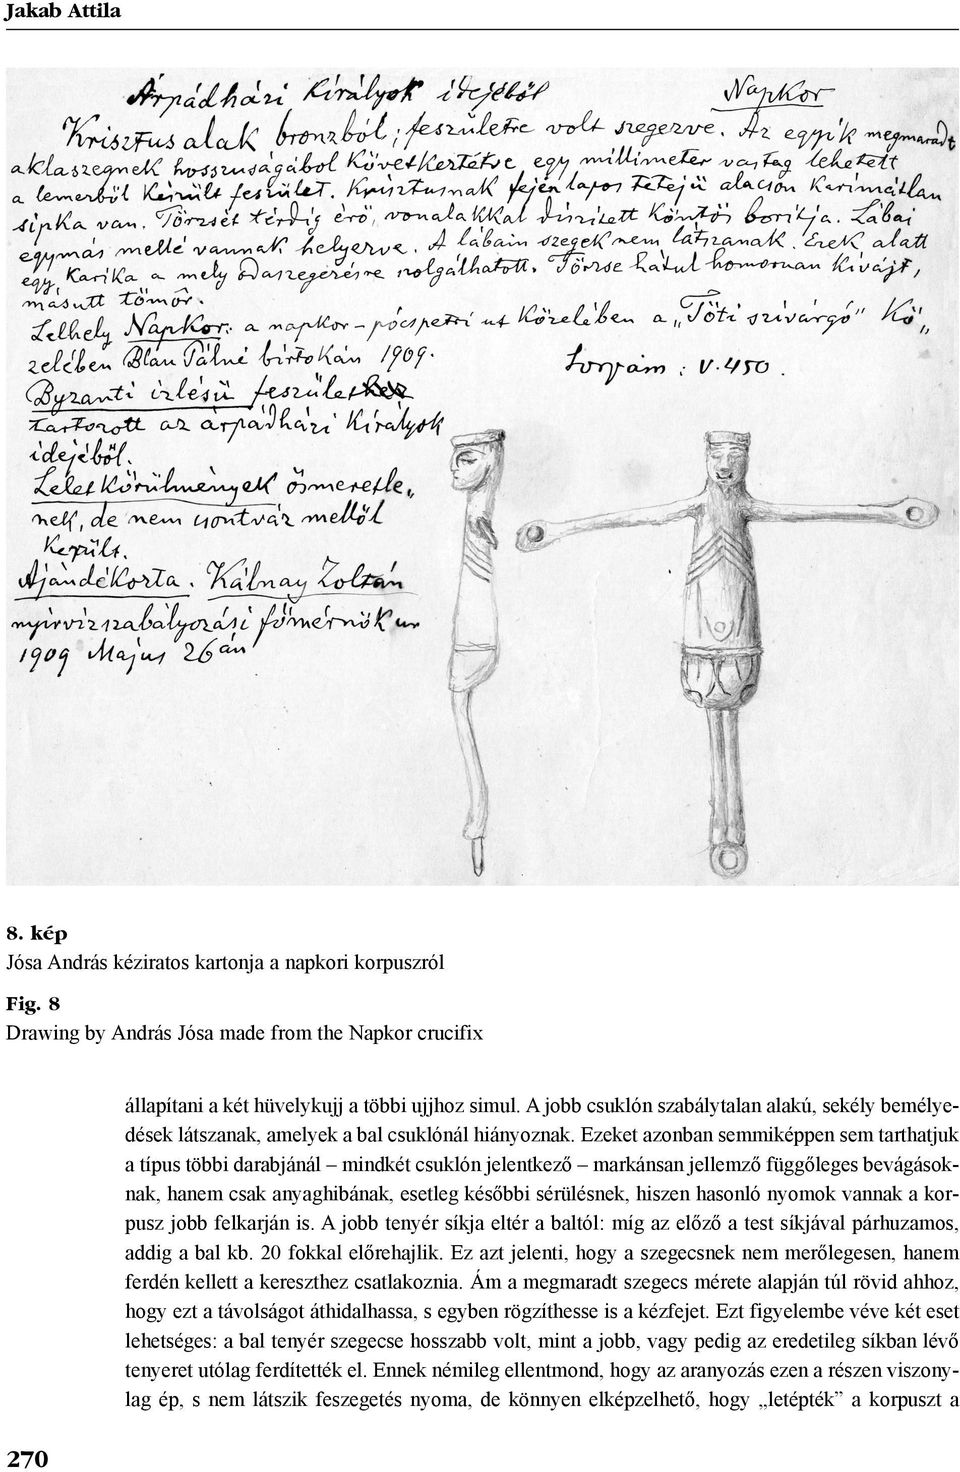 Jakab Attila
Árpádházi Királyok idejéből Napkor
Krisztus alak bronzból; feszületre volt szegezve. Az egyik megmaradt
aklaszegnek hosszuságából következtetve egy millimeter vastag lehetett
a lemezből készült feszület. Krisztusnak fején lapos tetejü alacson karimátlan
sipka van. Törzsét térdig érő, vonalakkal diszitett köntös boritja. Lábai
egymás mellé vannak helyezve. A lábain szegek nem látszanak. Ezek alatt
egy karika a mely odaszegezésre szolgálhatott. Törzse hátul homoruan kivájt,
másutt tömör.
Lelhely Napkor: a napkor-pócspetri ut közelében a „Tóti szivárgó" kö„
zelében Blau Pálné birtokán 1909.
Sorszám: V.450.
Byzanti izlésü feszülethez
tartozott az árpádházi Királyok
idejéből.
Leletkörülmények ösmeretle„
nek, de nem csontváz mellől
került.
Ajándékozta. Kálnay Zoltán
nyirvizszabályozási főmérnök ur
1909 Május 26án
8. kép
Jósa András kéziratos kartonja a napkori korpuszról
Fig. 8
Drawing by András Jósa made from the Napkor crucifix
állapítani a két hüvelykujj a többi ujjhoz simul. A jobb csuklón szabálytalan alakú, sekély bemélye-
dések látszanak, amelyek a bal csuklónál hiányoznak. Ezeket azonban semmiképpen sem tarthatjuk
a típus többi darabjánál – mindkét csuklón jelentkező – markánsan jellemző függőleges bevágások-
nak, hanem csak anyaghibának, esetleg későbbi sérülésnek, hiszen hasonló nyomok vannak a kor-
pusz jobb felkarján is. A jobb tenyér síkja eltér a baltól: míg az előző a test síkjával párhuzamos,
addig a bal kb. 20 fokkal előrehajlik. Ez azt jelenti, hogy a szegecsnek nem merőlegesen, hanem
ferdén kellett a kereszthez csatlakoznia. Ám a megmaradt szegecs mérete alapján túl rövid ahhoz,
hogy ezt a távolságot áthidalhassa, s egyben rögzíthesse is a kézfejet. Ezt figyelembe véve két eset
lehetséges: a bal tenyér szegecse hosszabb volt, mint a jobb, vagy pedig az eredetileg síkban lévő
tenyeret utólag ferdítették el. Ennek némileg ellentmond, hogy az aranyozás ezen a részen viszony-
lag ép, s nem látszik feszegetés nyoma, de könnyen elképzelhető, hogy „letépték" a korpuszt a
270